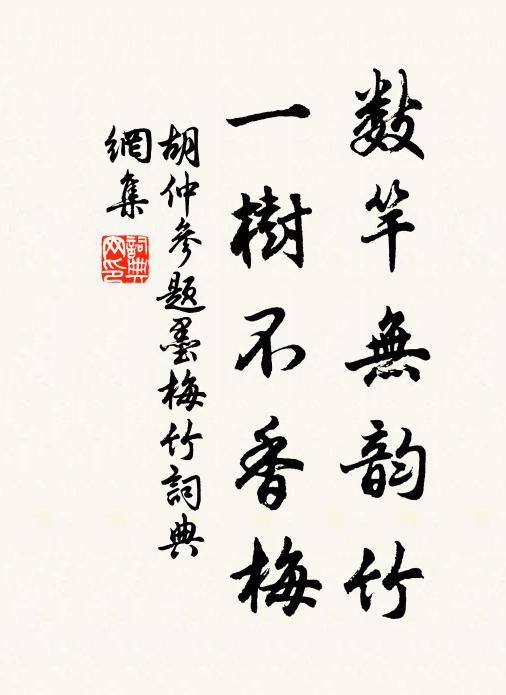 数竿無韵竹
一樹不香梅
胡仲參題墨梅竹詞典
網集
詞典
网印